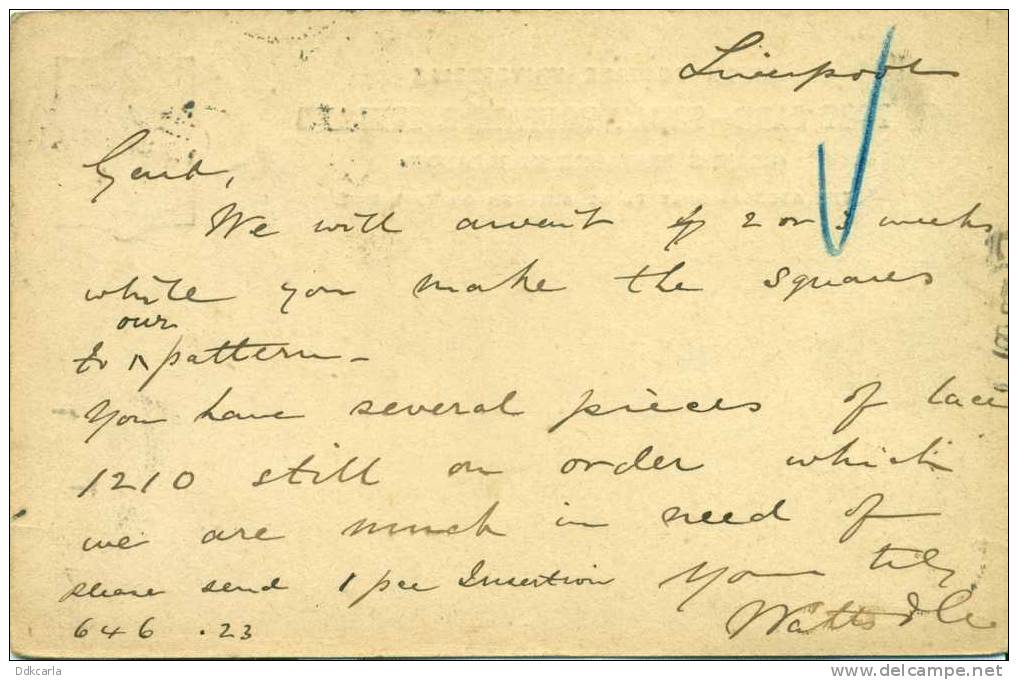 Liverpool
Gent,
We will await 2 or 3 weeks
while you make the squares
our
to ^ pattern -
You have several pieces of lace
1210 still on order which
we are much in need of
please send 1 pce Insertion Yours tly
646 . 23 Watts & Co
Ddkcarla
www.delcampe.net